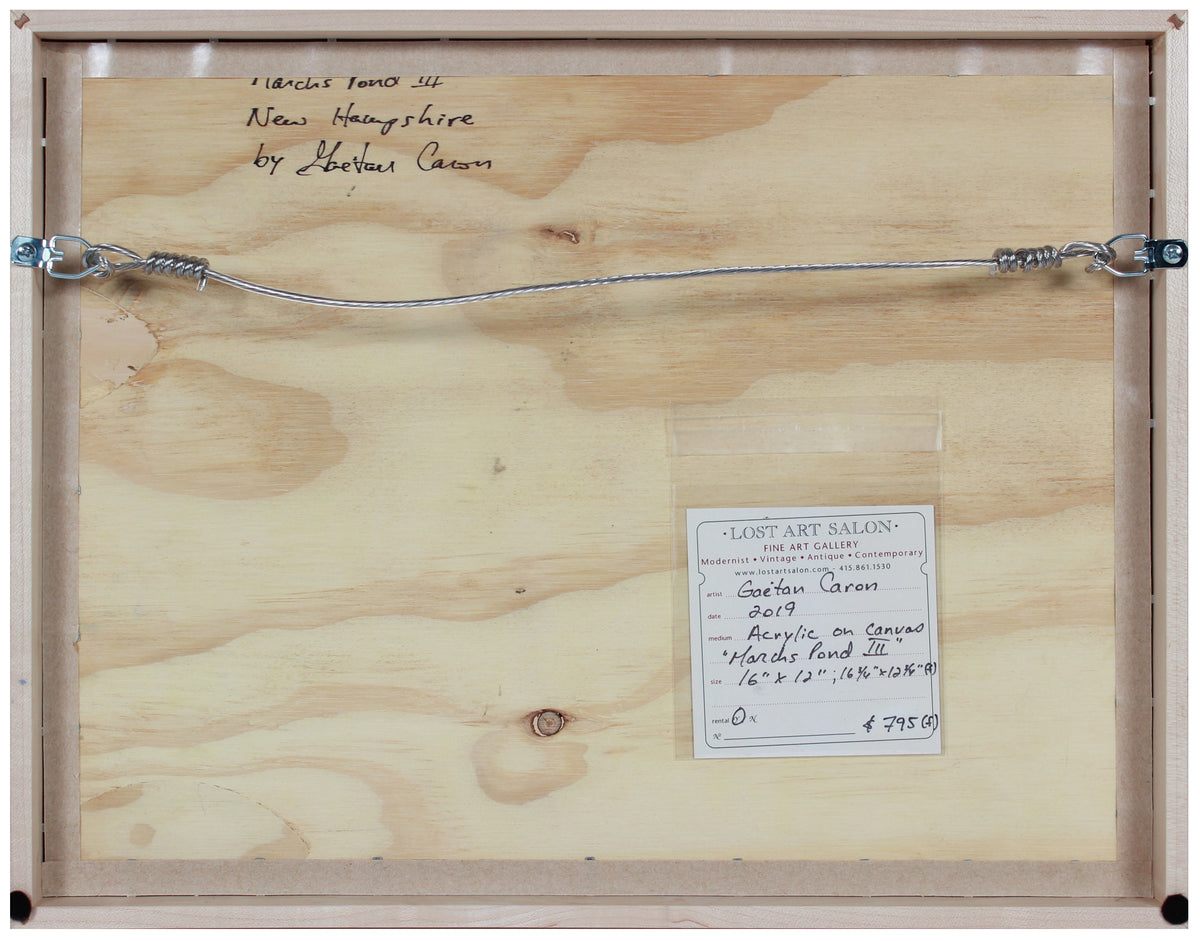 Marchs Pond III
New Hampshire
by Gaëtan Caron
· LOST ART SALON ·
FINE ART GALLERY
Modernist • Vintage • Antique • Contemporary
www.lostartsalon.com - 415.861.1530
artist Gaëtan Caron
date 2019
medium Acrylic on canvas
"Marchs Pond III"
size 16" x 12" ; 16 3/4" x 12 3/4" (f)
rental Y N
$ 795 (f)
Nº